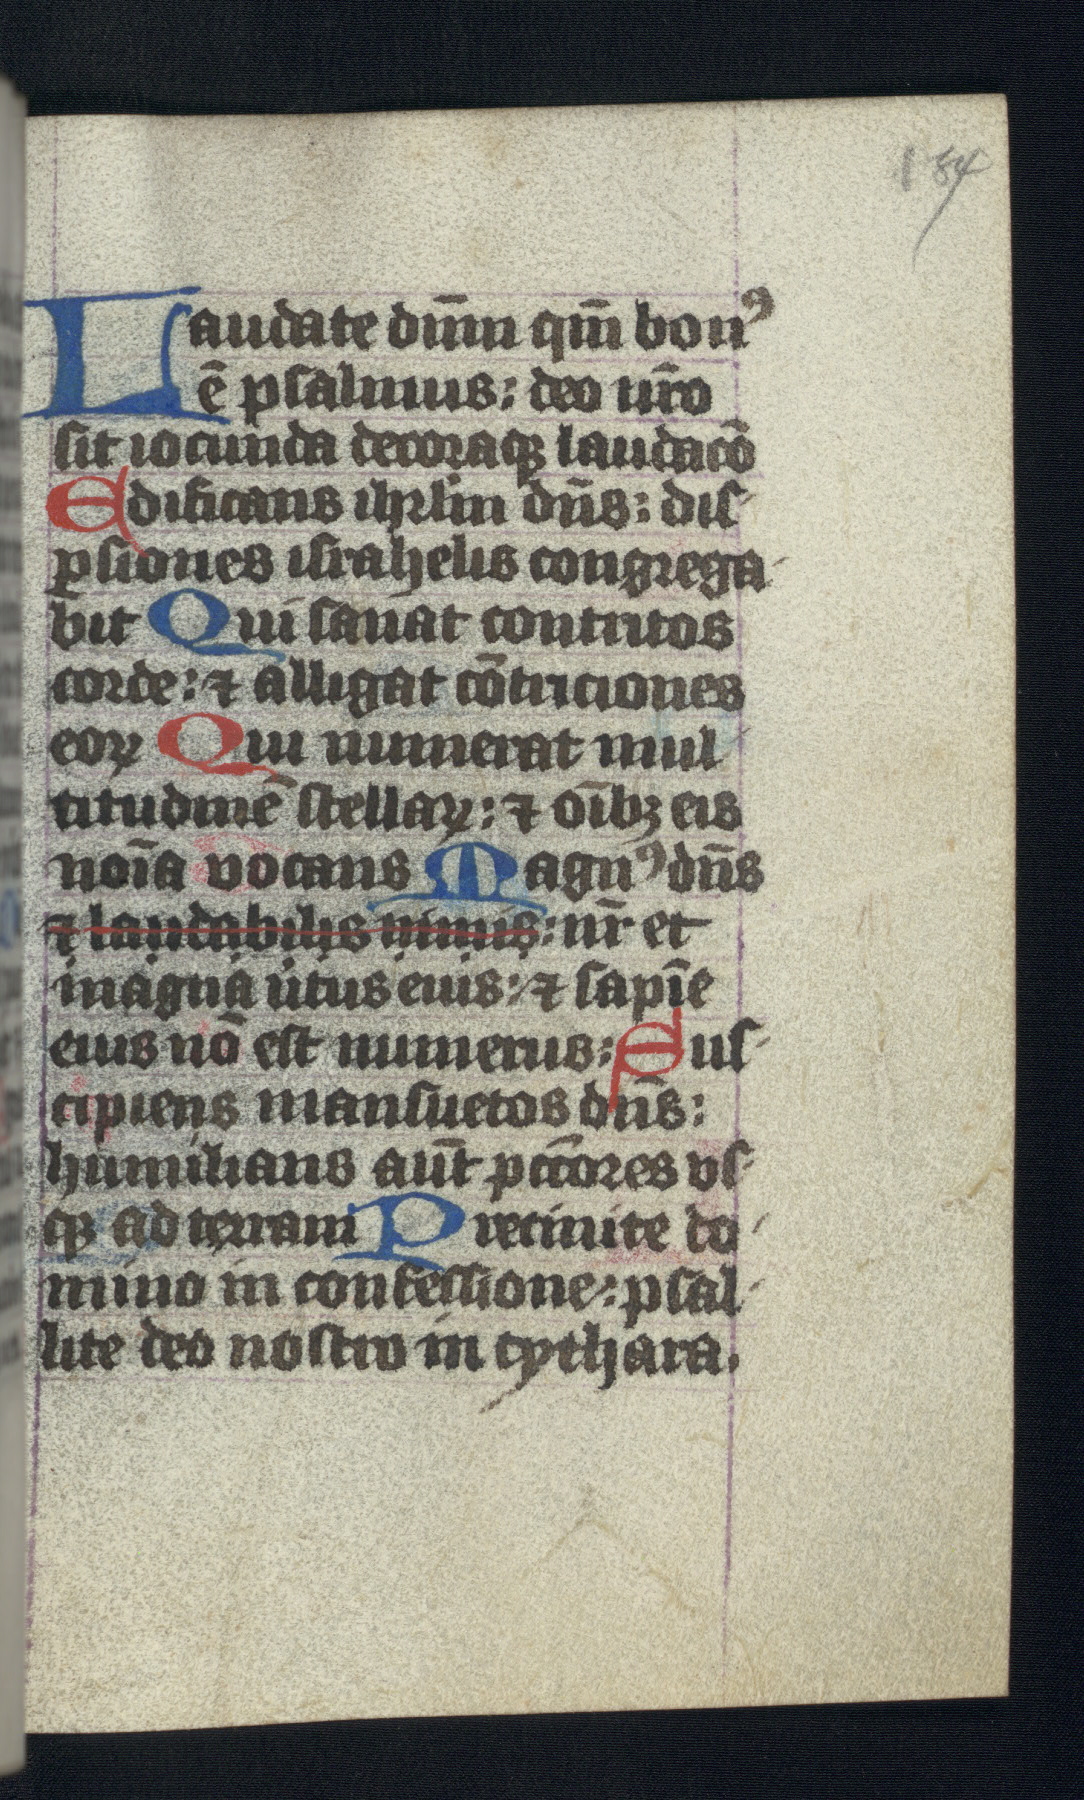 184
Laudate dnm̄ qm̄ bonꝰ
ē psalmus: deo nr̄o
sit iocunda decoraqꝫ laudacō
Edificans ihrlm dn̄s: dis-
ꝑsiones israhelis congrega-
bit Qui sanat contritos
corde: ⁊ alligat cōtriciones
eoꝝ Qui numerat mul-
titudinē stellaꝝ: ⁊ oībꝫ eis
noīa vocans Magnꝰ dn̄s
⁊ laudabilis nimis: nr̄ et
magna ụ̄tus eius: ⁊ sapīe
eius nō est numerus: Sus-
cipiens mansuetos dn̄s:
humilians aūt pcc̄ores vs-
qꝫ ad terram Precinite do-
mino in confessione: psal-
lite deo nostro in cythara.